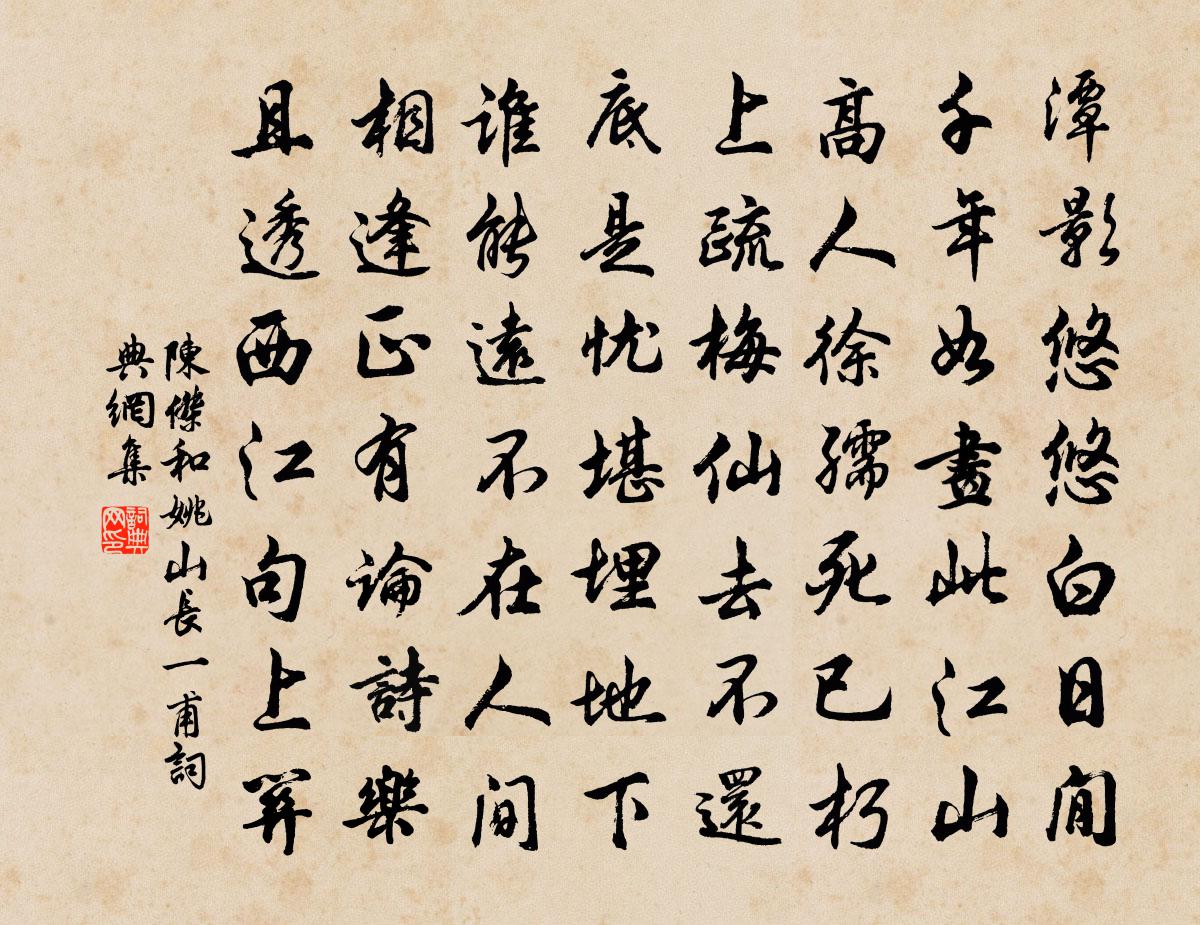 潭影悠悠白日閒
千年如畫此江山
高人徐孺死已朽
上疏梅仙去不還
底是忱堪埋地下
誰能遠不在人間
相逢正有論詩樂
且透西江句上關
陳傑和姚山長一甫詞
典網集
詞典
网印